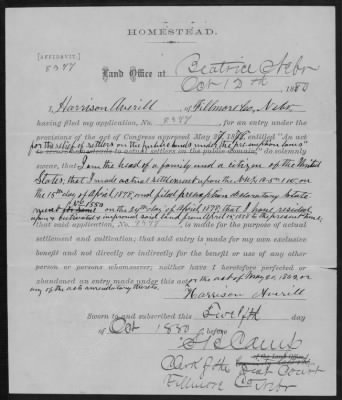 HOMESTEAD.
[AFFIDAVIT.]
8397
Land Office at Beatrice Nebr
Oct 12th 1880
I, Harrison Averill of Fillmore Co, Nebr
having filed my application, No. 8397 for an entry under the
provisions of the act of Congress approved May 27 1878, entitled "An act
for the relief of settlers on the public lands under the preemption laws"
do solemnly
swear, that I am the head of a family and a citizen of the United
States, that I made actual settlement upon the
on the 15th day of April 1878, and filed preemption declaratory state
ment No
on the 24th day of April 1878, that I have resided
upon & cultivated & improved said land from April 15, 1878 to the present time,
that said application, No. 8397 is made for the purpose of actual
settlement and cultivation; that said entry is made for my own exclusive
benefit and not directly or indirectly for the benefit or use of any other
person or persons whomsoever; neither have I heretofore perfected or
abandoned an entry made under this act or the act of May 20, 1862 or
any of the acts amendatory thereto.
Harrison Averill
Sworn to and subscribed this Twelfth day
of Oct 1880 before
Clerk of the Dist Court
Fillmore Co Nebr